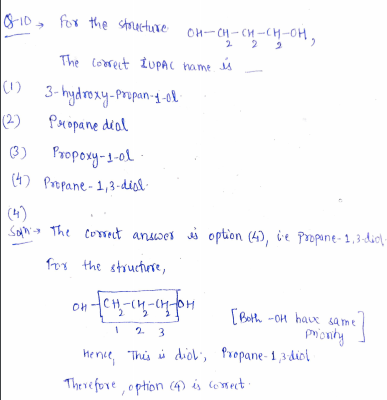 Q-10 → For the structure OH-CH2-CH2-CH2-OH,
The correct IUPAC name is __
(1) 3-hydroxy-Propan-1-ol
(2) Propane diol
(3) Propoxy-1-ol.
(4) Propane-1,3-diol.
(4)
Soln → The correct answer is option (4), i.e Propane-1,3-diol.
For the structure,
OH-CH2-CH2-CH2-OH
1 2 3
[Both -OH have same priority]
Hence, This is diol., Propane-1,3diol
Therefore, option (4) is correct.